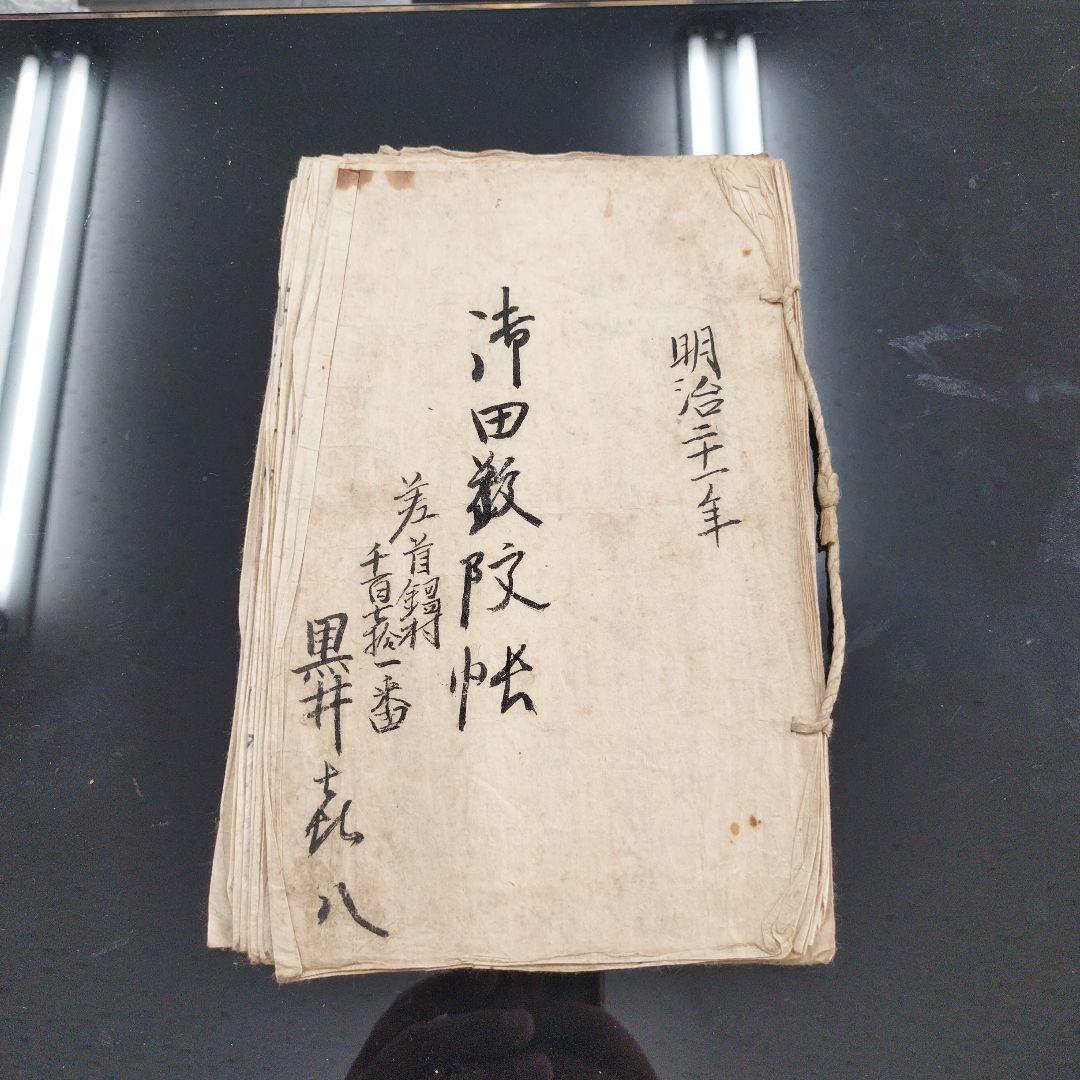 明治二十一年
御田数改帳
差首鍋村
千百七拾一番
黒井喜八